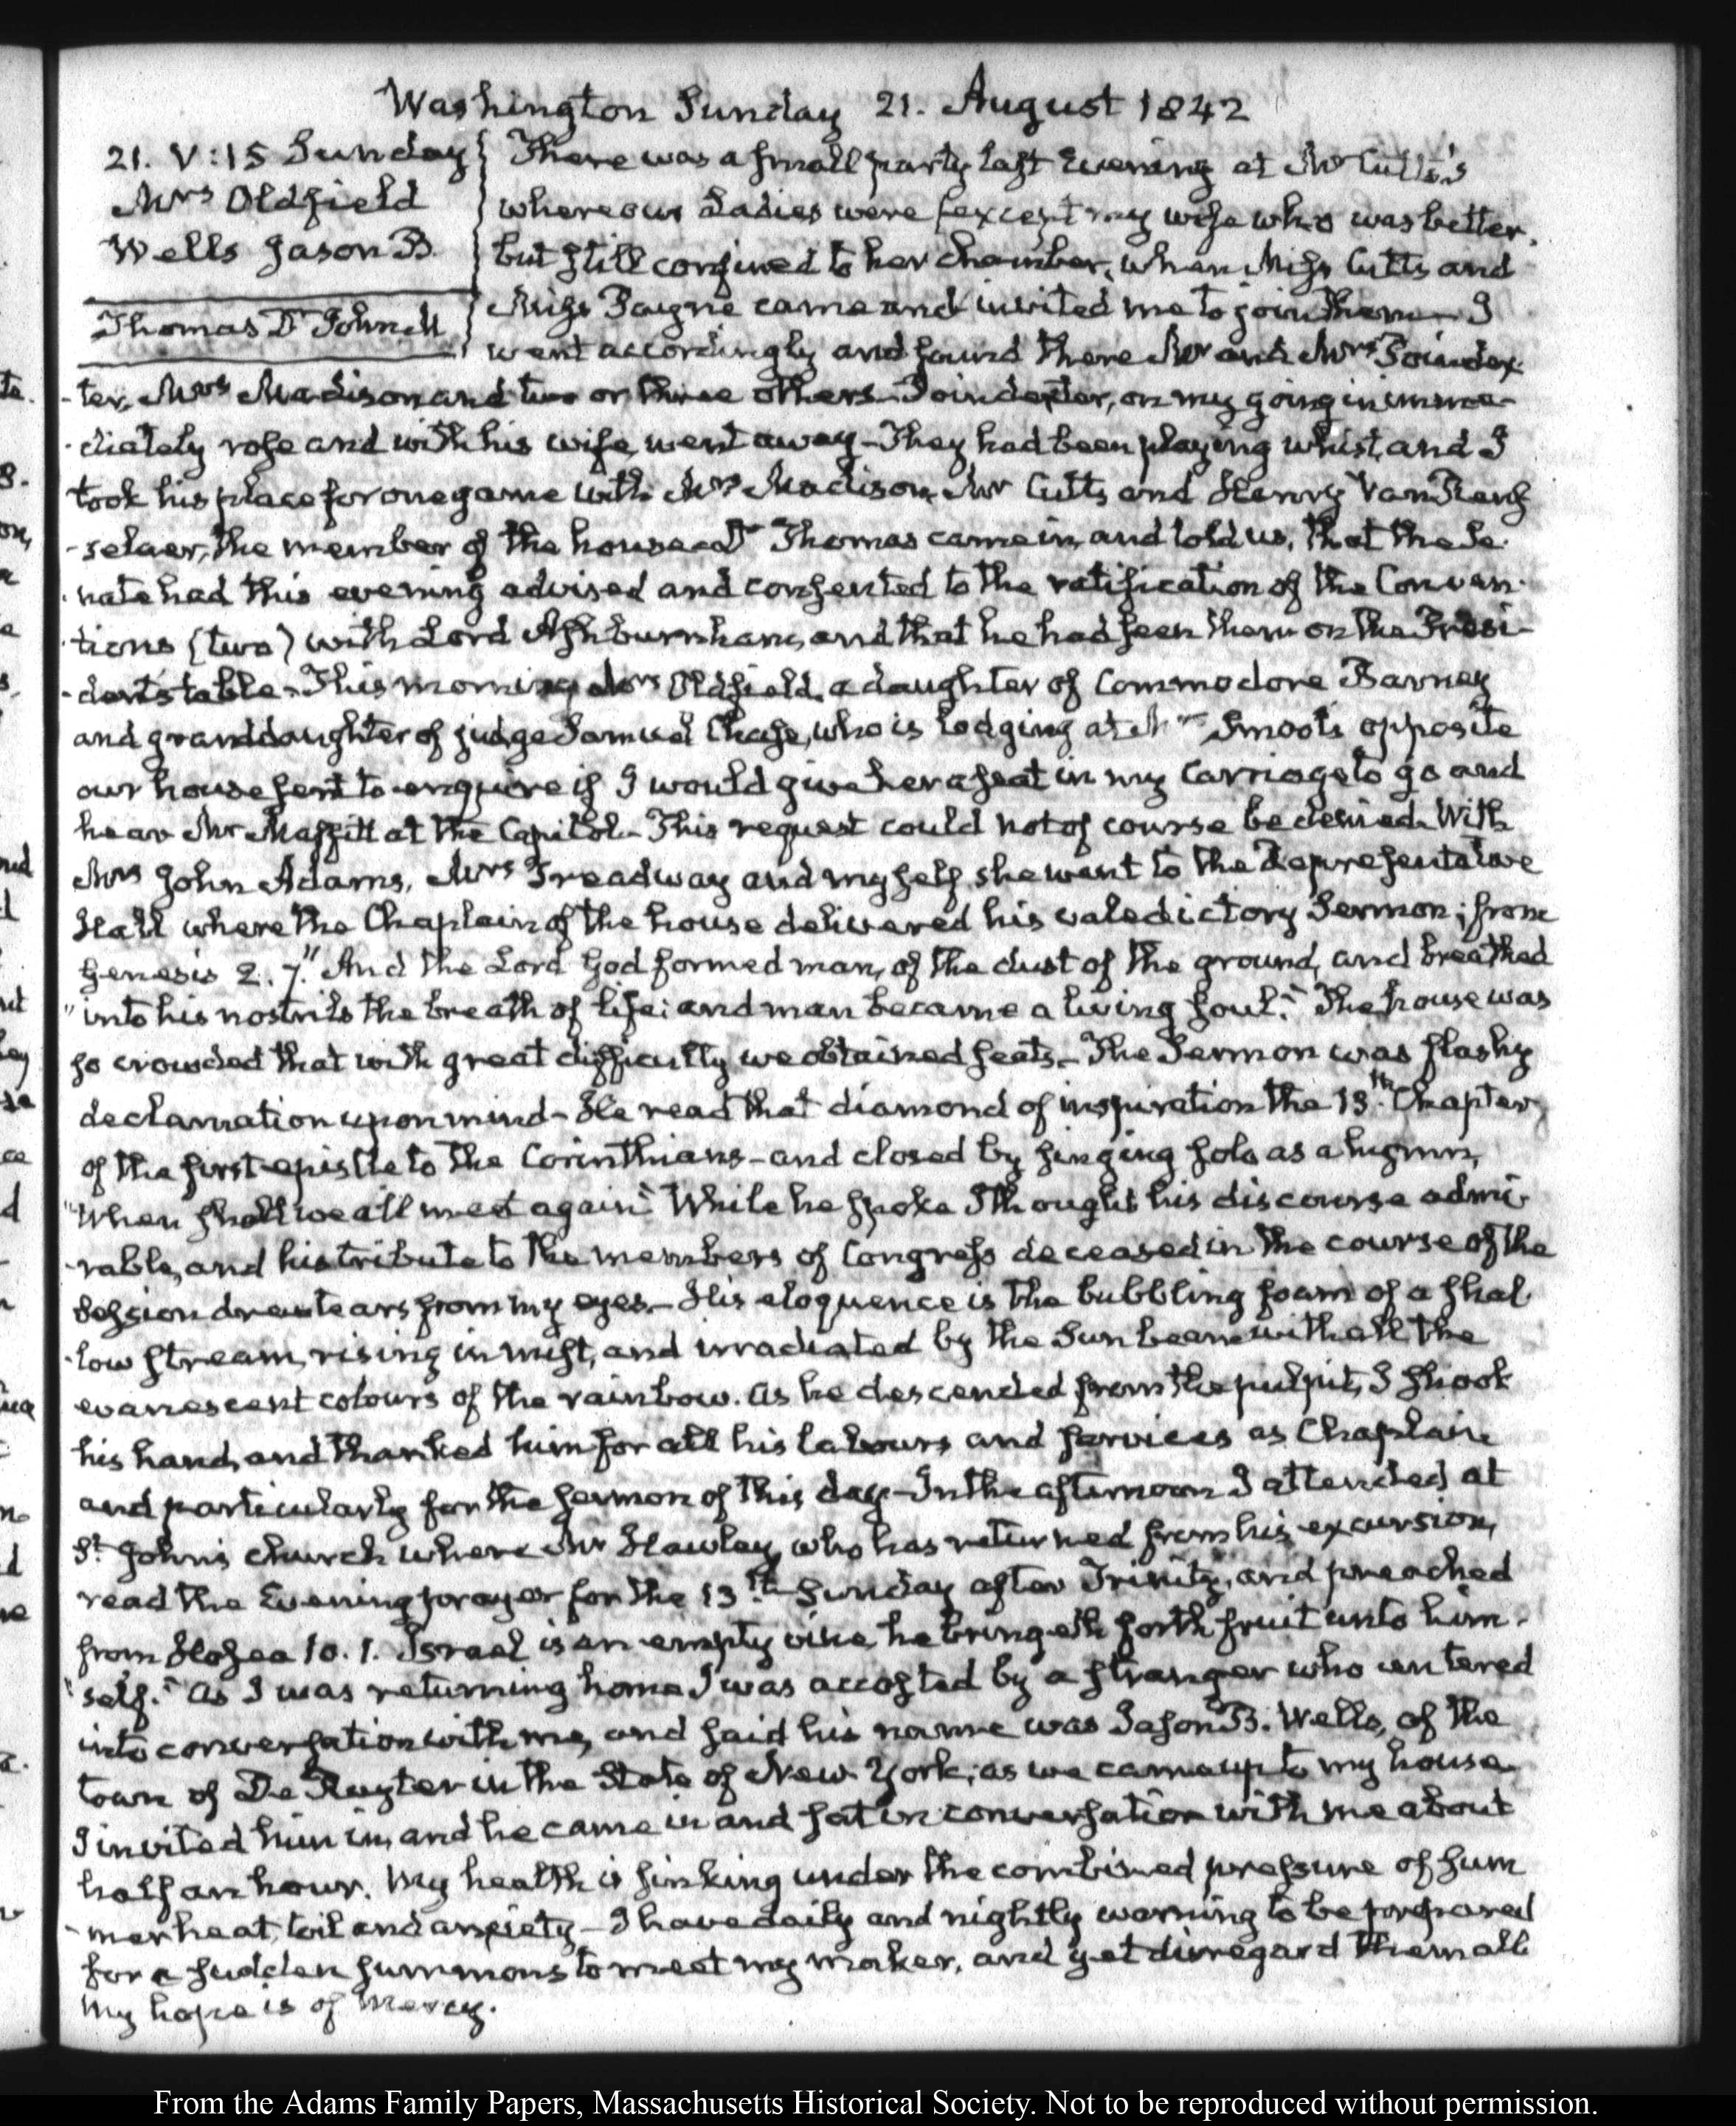 Washington Sunday 21. August 1842
21. V:15 Sunday
Mrs Oldfield
Wells Jason B.
Thomas Dr John M
There was a small party last Evening at Mr Cutts's
where our Ladies were (except my wife who was better,
but still confined to her chamber, when Miss Cutts and
Miss Payne came and invited me to join them— I
went accordingly and found there Mr and Mrs Poindex-
-ter, Mrs Madison and two or three others— Poindexter, on my going in imme-
-diately rose and with his wife, went away— They had been playing whist, and I
took his place for one game with Mrs Madison, Mr Cutts and Henry Van Rens-
-selaer, the member of the house— Dr Thomas came in, and told us, that the Se-
-nate had this evening advised and consented to the ratification of the Conven-
-tions (two) with Lord Ashburnham, and that he had seen them on the Presi-
-dent's table— This morning Mrs Oldfield, a daughter of Commodore Barney
and granddaughter of judge Samuel Chase, who is lodging at Mrs Smoot's opposite
our house sent to enquire if I would give her a seat in my Carriage to go and
hear Mr Maffitt at the Capitol— This request could not of course be denied. With
Mrs John Adams, Mrs Treadway and myself she went to the Representative
Hall where the Chaplain of the house delivered his valedictory Sermon; from
Genesis 2. 7. "And the Lord God formed man, of the dust of the ground, and breathed
"into his nostrils the breath of life: and man became a living soul." The house was
so crowded that with great difficulty we obtained seats— The Sermon was flashy
declamation upon mind— He read that diamond of inspiration the 13th Chapter,
of the first epistle to the Corinthians— and closed by singing solo as a hymn,
"When shall we all meet again" While he spoke I thought his discourse admi-
-rable, and his tribute to the members of Congress deceased in the course of the
Session drew tears from my eyes— His eloquence is the bubbling foam of a shal-
-low stream, rising in mist, and irradiated by the Sun beam with all the
evanescent colours of the rainbow. As he descended from the pulpit, I shook
his hand, and thanked him for all his labours and services as Chaplain
and particularly for the sermon of this day— In the afternoon I attended at
St. John's church where Mr Hawley, who has returned from his excursion,
read the Evening prayer for the 13th Sunday after Trinity, and preached
from Hosea 10. 1. Israel is an empty vine, he bringeth forth fruit unto him-
"self." As I was returning home I was accosted by a stranger who entered
into conversation with me, and said his name was Jason B. Wells, of the
town of De Ruyter in the State of New-York; as we came up to my house
I invited him in, and he came in and sat in conversation with me about
half an hour. My health is sinking under the combined pressure of sum-
-mer heat, toil and anxiety— I have daily and nightly warning to be prepared
for a sudden summons to meet my maker, and yet disregard them all
My hope is of Mercy.
From the Adams Family Papers, Massachusetts Historical Society. Not to be reproduced without permission.